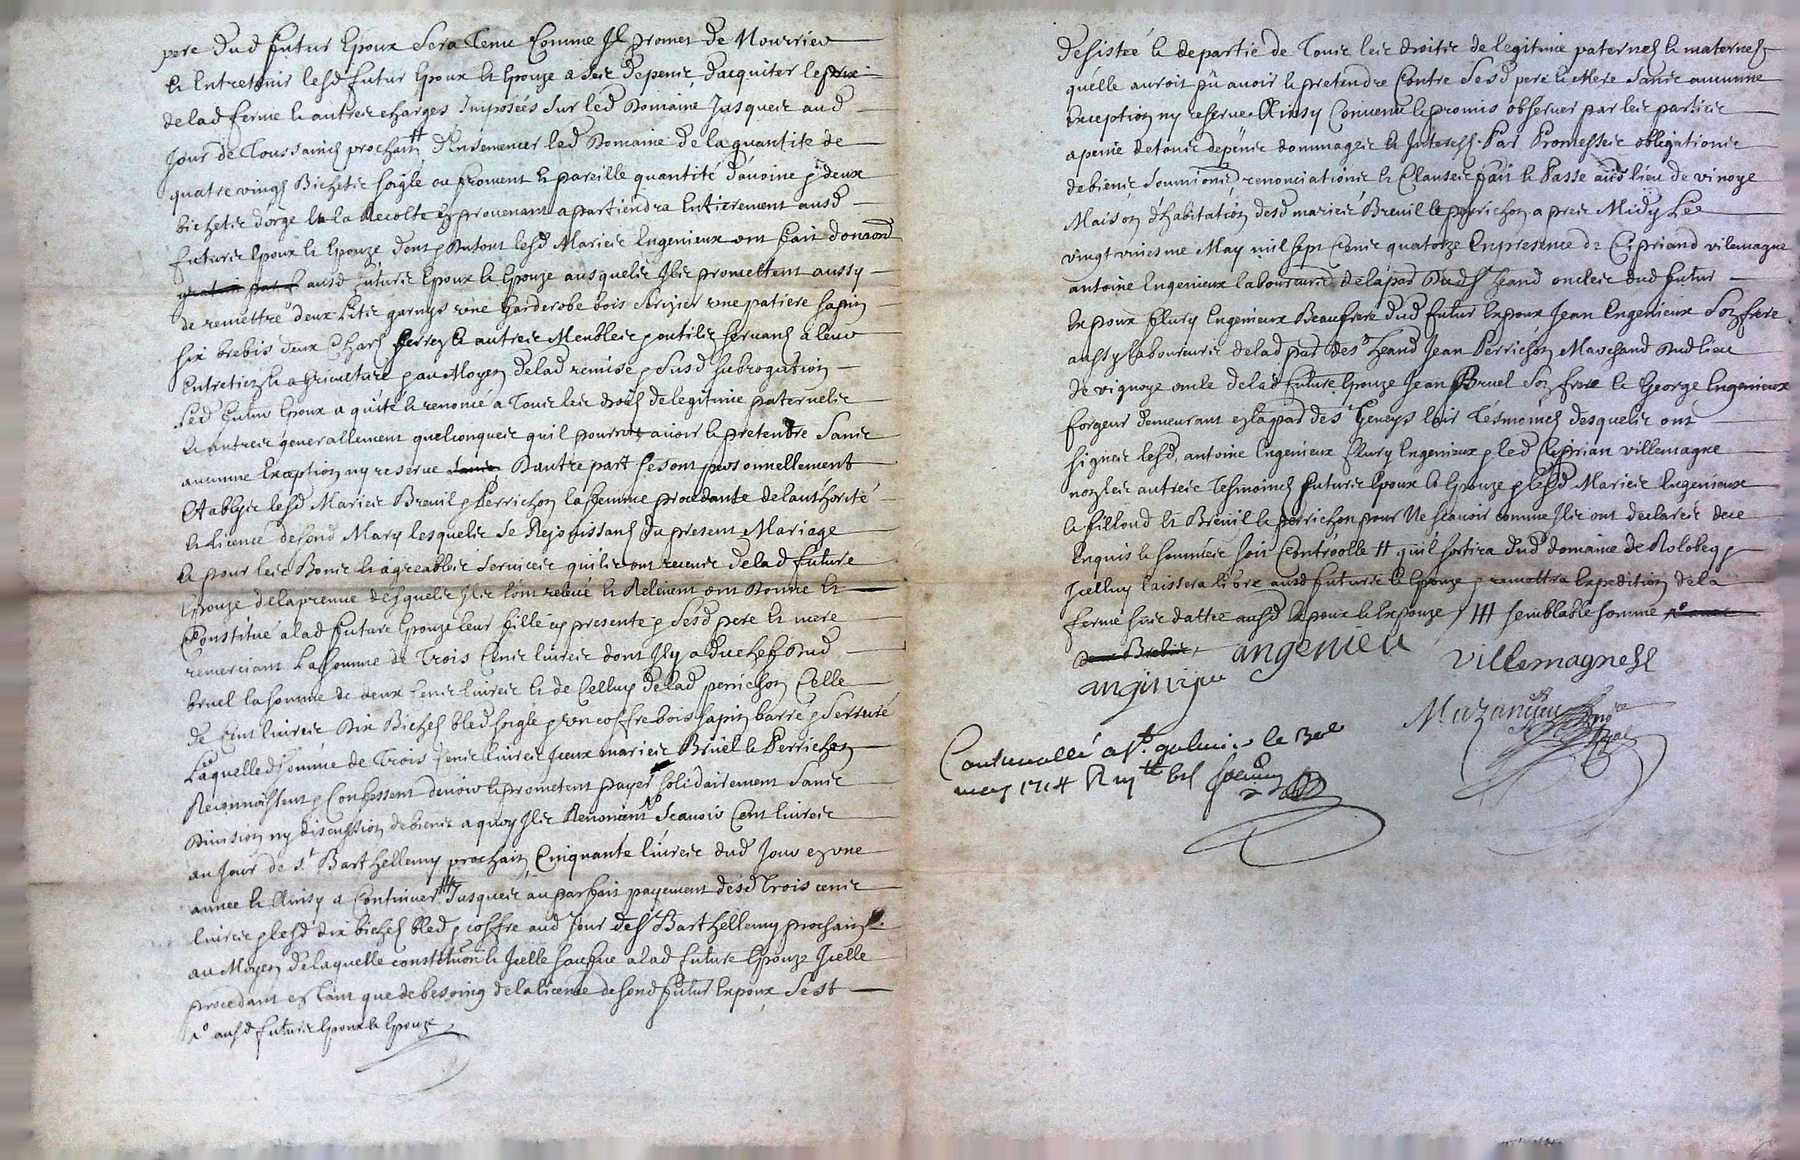 pere dud futur Epoux sera tenu comme Il promet de Nourrir
et Entretenir lesd futur Epoux et Epouze a ses depens d'acquiter le prix
de lad ferme et autres charges Imposées sur led Domaine Jusques aud
Jour de Toussaincts prochain # d'Ensemencer led Domaine de la quantité de
quatre vingt Bichets soigle ou froment et pareille quantité d'avoine deux
bichets d'orge et la Recolte en provenant apartiendra Entierement ausd
futurs Epoux et Epouze dont lesd Mariés Engenieux ont fait donaon
ausd futurs Epoux et Epouze ausquels Ils promettent aussy
de remettre deux Lits garnys une Garderobe bois serizier une patiere sapin
six brebis deux Chars ferrez et autres Meubles outils servant a leur
Entretien et agriculture au Moyen de lad remise susd subrogation
led futur Epoux a quité et renoncé a Tous les droits de legitime paternels
et autres generallement quelconques quil pourroit avoir et pretendre sans
aucunne Exception ny reserve D'autre part se sont personnellement
Etablys lesd Mariés Breuil Perrichon la femme procedante de l'authorité
et licence desond Mary lesquels se Rejouissant du present Mariage
et pour les Bons et agreables services quils ont receus de lad future
Epouze de la preuve desquels Ils l'ont relevé et Relevent ont Donné et
Constitué a lad future Epouze leur fille cy presente sesd pere et mere
remerciant La somme de Trois Cents livres dont Il y a du chef dud
bruel la somme de deux Cents livres et de Celluy de lad perrichon Celle
de Cent livres Dix Bichets bled soigle un coffre bois sapin barré serruré
Laquelle somme de Trois Cents livres Iceux mariés Bruel et Perrichon
Reconnoissent Confessent devoir et prometent payer solidairement sans
Division ny discussion de biens a quoy Ils Renoncent Scavoir Cent livres
au Jour de St Barthellemy prochain Cinquante livres dud Jour en une
annee et Ainsy a Continuer ### Jusques au parfait payement desd Trois cents
livres lesd dix bichets bled coffre aud Jour de St Barthellemy prochain
au Moyen de laquelle constitution et Icelle sauvue a lad future Epouze Icelle
procedant en tant que de besoing de la licence desond futur Expoux S'est
ausd futurs Epoux et Epouze
desistée et departie de Tous les droits de legitime paternels et maternels
quelle auroit pû avoir et pretendre Contre sesd pere et Mere sans aucunne
Exception ny reserve Ainsy Convenu et promis observer par les parties
a peine de tous depens dommages et Interests Par Promesses obligations
de biens soumions renonciations et Clauses fait et Passé aud lieu de vinoye
Maison d'habitation desd mariés Breuil et perrichon apres Midy Le
vingt May mil sept Cents quatorze En presence de Cipriand vilemagne
antoine Engenieux laboureurs de la par Heand oncles dud futur
Expoux fleury Engenieux Beaufrere dud futur Expoux Jean Engenieux son frere
aussy Laboureurs de lad par de St Heand Jean Perrichon Marchand dud lieu
de vignoye oncle de lad future Epouze Jean Bruel son frere et George Engenieux
forgeur demeurant en la par de St Geneys tesmoins desquels ont
signés lesd antoine Engenieux fleury Engenieux led Ciprian villemagne
non les autres tesmoins futurs Epoux et Epouze lesd Mariés Engenieux
et fillond et Breuil et perrichon pour Ne scavoir comme Ils ont declarés de ce
Enquis et sommés soit Controolle # quil sortira dud domaine de
Icelluy laissera libre ausd futurs et Epouze remettra Expedition de la
ferme sans dattee ausd Expoux et Expouze ### semblable somme
angenieu villemagnesh
anginieu
Controollé a St galmier le
may 1714